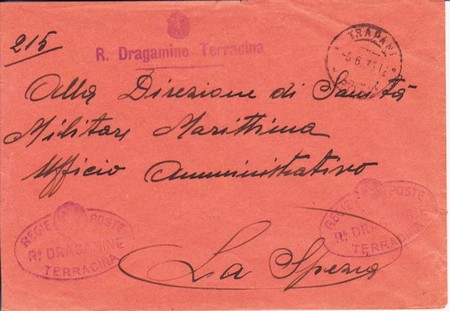 215
R. Dragamine Terracina
TRAPANI
Alla Direzione di Sanità
Militare Marittima
Ufficio Amministrativo
REGIE POSTE
Rª DRAGAMINE
TERRACINA
REGIE POSTE
Rª DRAGAMINE
TERRACINA
La Spezia